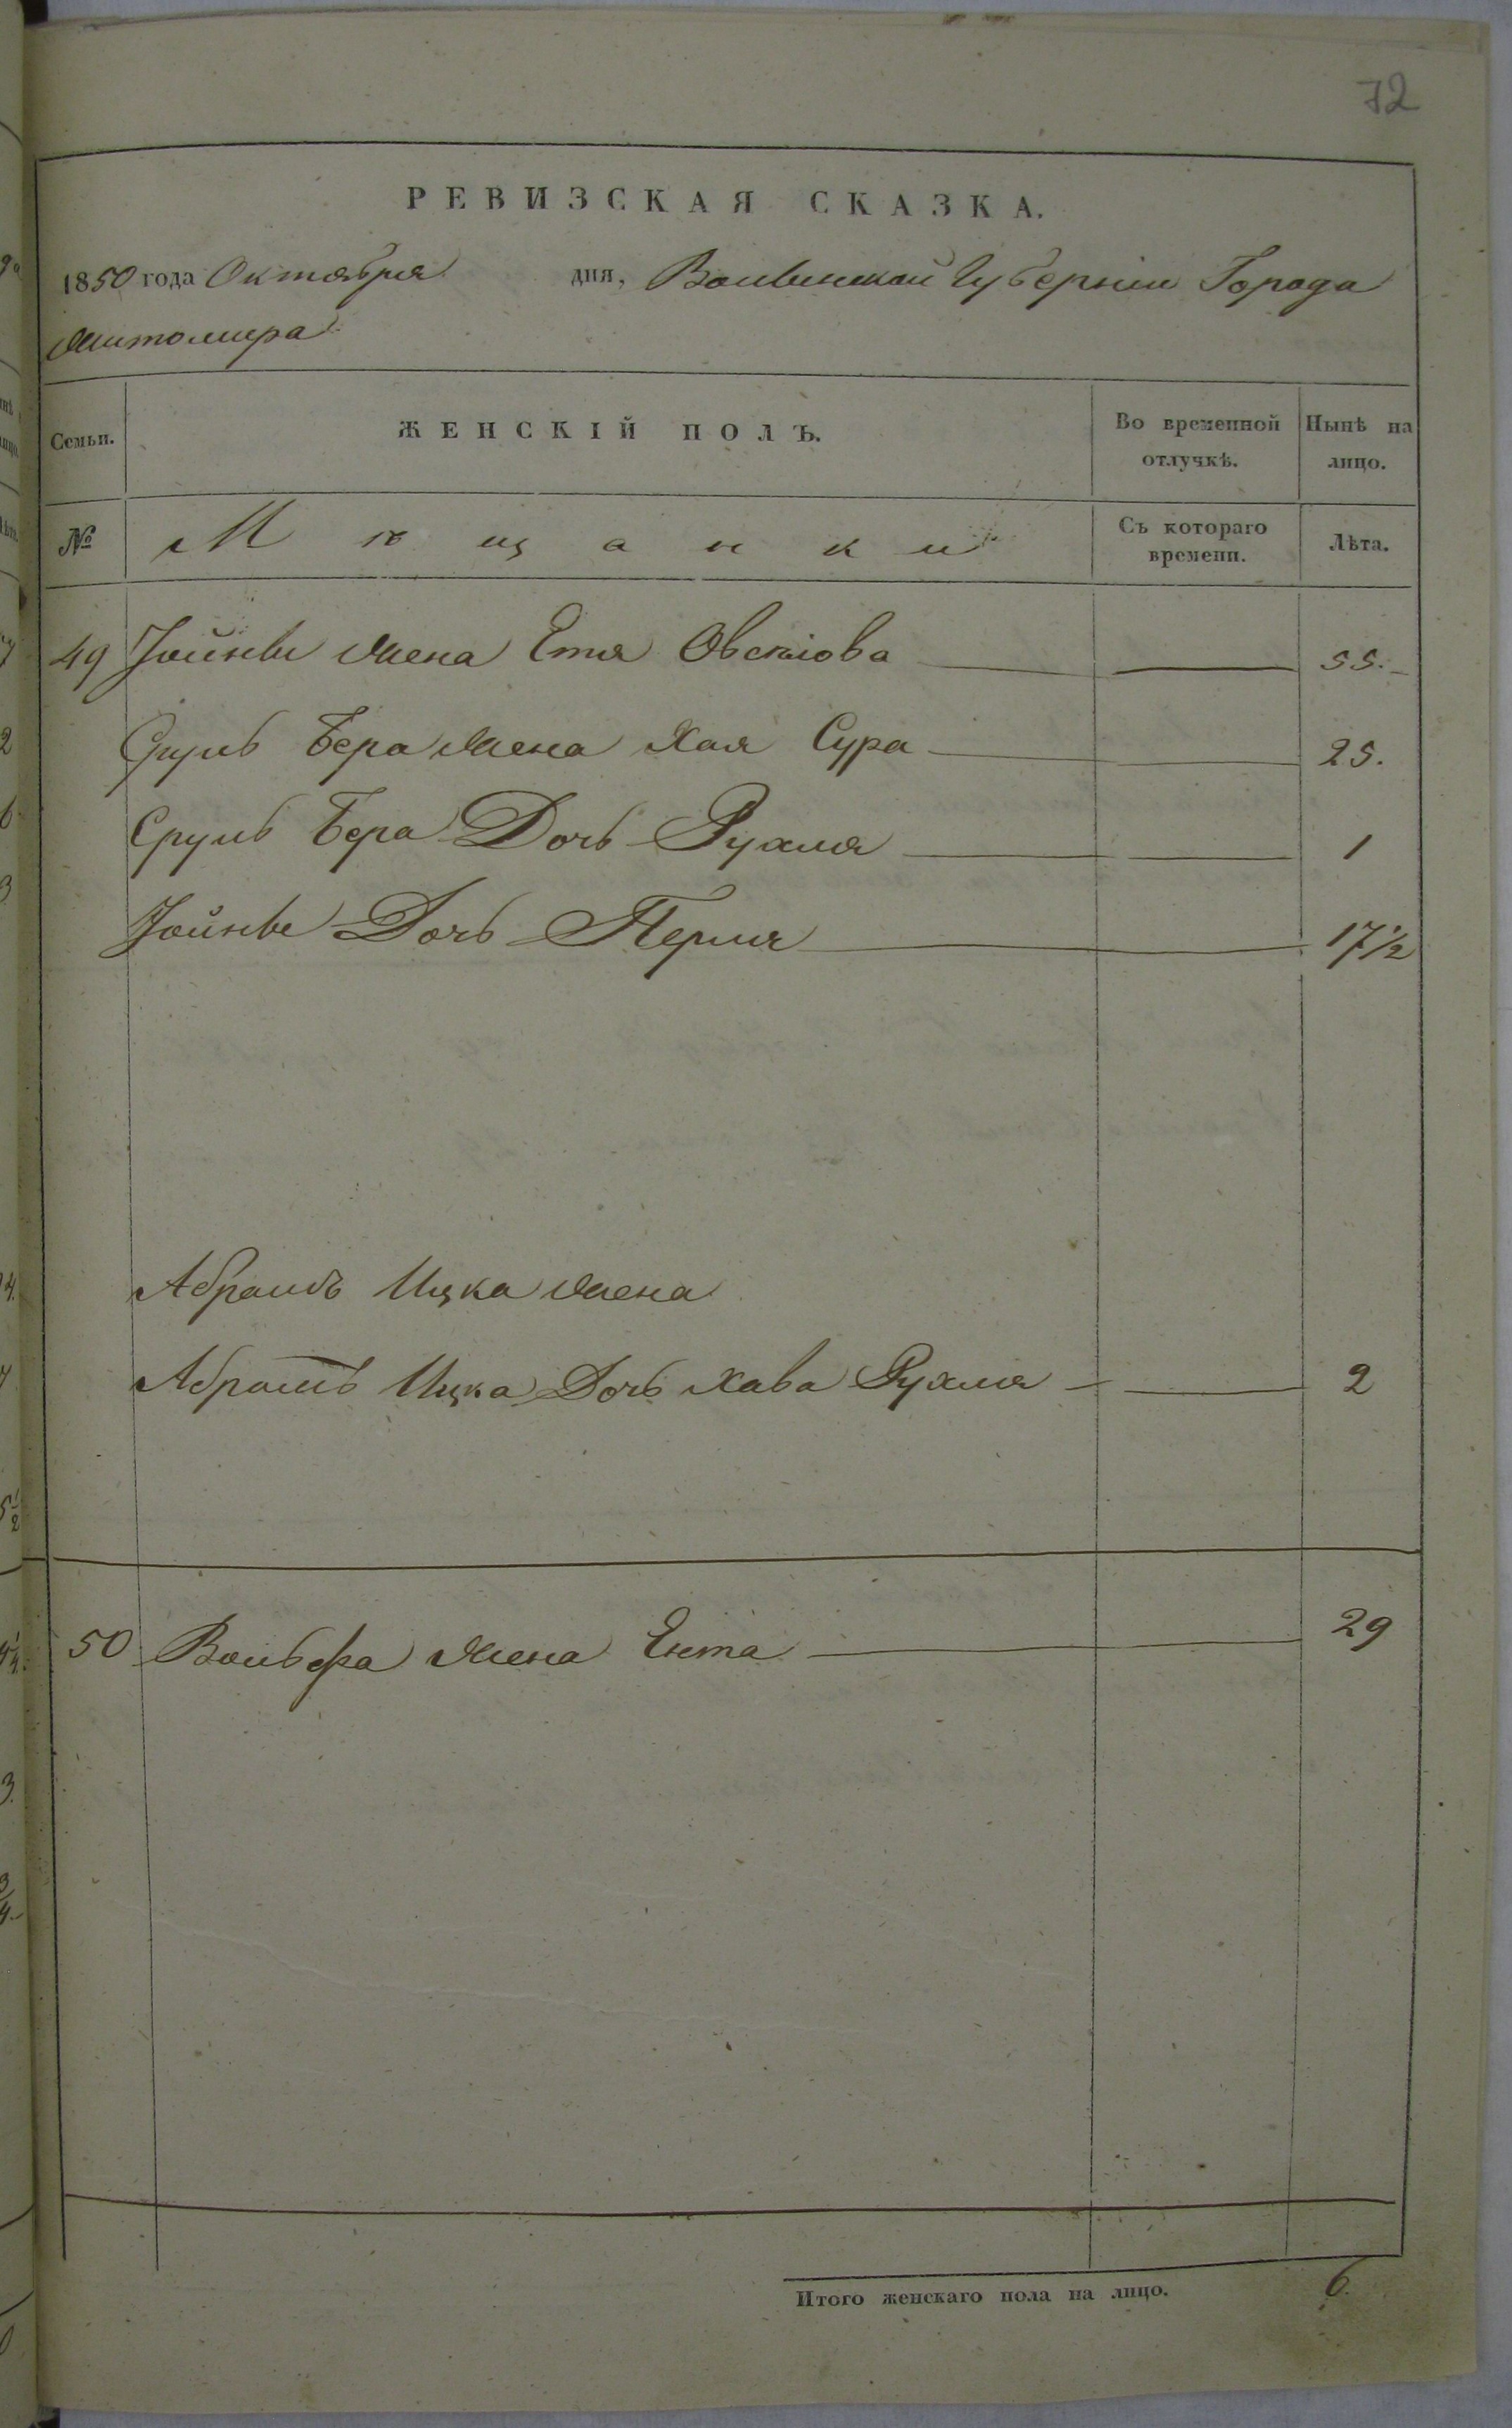 72
РЕВИЗСКАЯ СКАЗКА.
1850 года Октября дня, Волынской Губерніи Города
Житомира
Семьи. ЖЕНСКІЙ ПОЛЪ. Во временной отлучкѣ. Нынѣ на лицо.
№ Мѣщанки Съ котораго времени. Лѣта.
49 Іойны жена Етя Овсѣіова 55.
Сруль Бера жена Хая Сура 25.
Сруль Бера Дочь Рухля 1
Іойны Дочь Перля 17 1/2
Абрамъ Ицка жена
Абрамъ Ицка Дочь Хава Рухля 2
50 Вольфа жена Ента 29
Итого женскаго пола на лицо. 6.